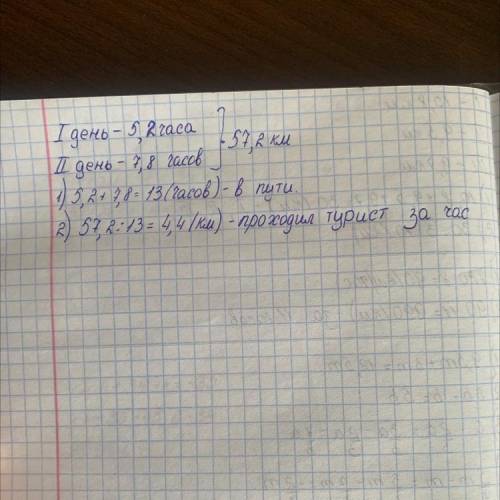 I день - 5,2 часа
- 57,2 км
II день - 7,8 часов
1) 5,2 + 7,8 = 13 (часов) - в пути.
2) 57,2 : 13 = 4,4 (км) - проходил турист за час